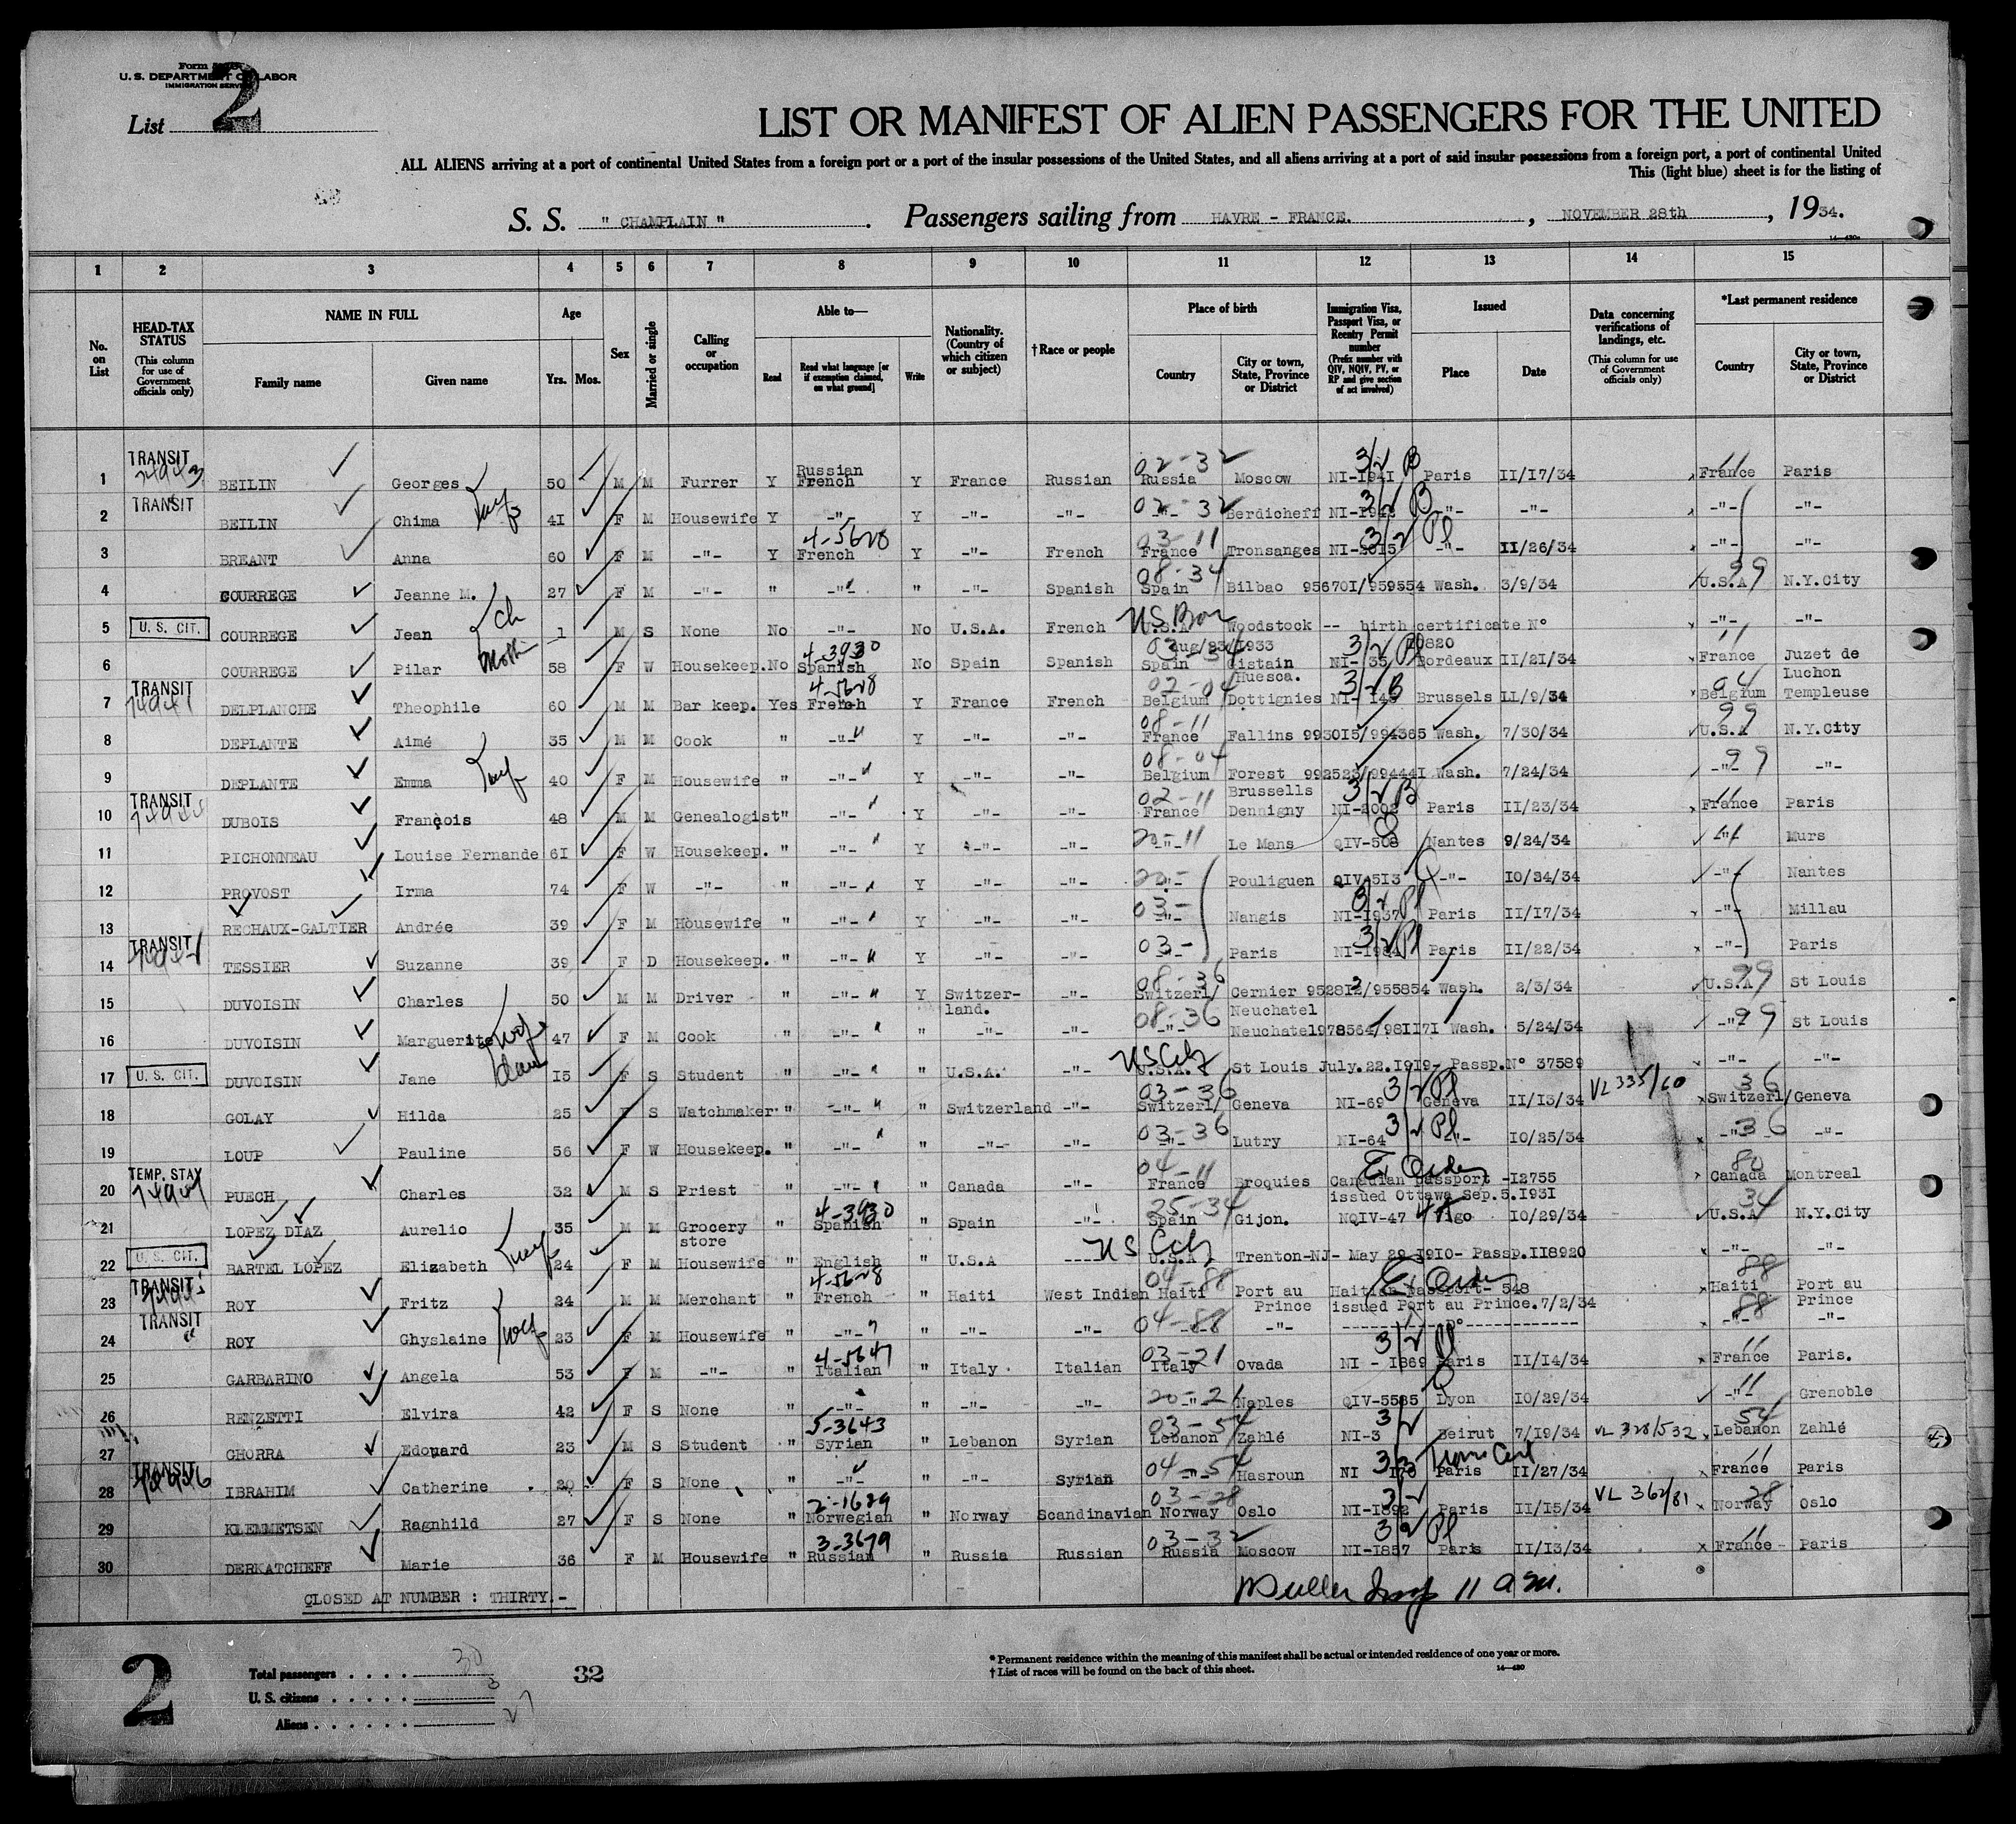 Form
U. S. DEPARTMENT OF LABOR
IMMIGRATION SERVICE
List 2
LIST OR MANIFEST OF ALIEN PASSENGERS FOR THE UNITED
ALL ALIENS arriving at a port of continental United States from a foreign port or a port of the insular possessions of the United States, and all aliens arriving at a port of said insular possessions from a foreign port, a port of continental United
This (light blue) sheet is for the listing of
S. S. " CHAMPLAIN ". Passengers sailing from HAVRE - FRANCE. , NOVEMBER 28th , 1934.
1 2 3 4 5 6 7 8 9 10 11 12 13 14 15
No. on List
HEAD-TAX STATUS (This column for use of Government officials only)
NAME IN FULL
Family name Given name
Age
Yrs. Mos.
Sex
Married or single
Calling or occupation
Able to—
Read Read what language [or if exemption claimed, on what ground] Write
Nationality. (Country of which citizen or subject)
†Race or people
Place of birth
Country City or town, State, Province or District
Immigration Visa, Passport Visa, or Reentry Permit number (Prefix number with QIV, NQIV, PV, or RP and give section of act involved)
Issued
Place Date
Data concerning verifications of landings, etc. (This column for use of Government officials only)
*Last permanent residence
Country City or town, State, Province or District
1 TRANSIT BEILIN Georges 50 M M Furrer Y Russian French Y France Russian 02-32 Russia Moscow NI-1941 3/2 B Paris II/17/34 France Paris
2 TRANSIT BEILIN Chima wife 41 F M Housewife Y -"- Y -"- -"- 02-32 -"- Berdicheff NI-1942 3/2 B -"- -"- -"- -"-
3 BREANT Anna 60 F M -"- Y 4-5628 French Y -"- French 03-11 France Tronsanges NI-2015 3/2 Pl -"- II/26/34 -"- -"-
4 COURREGE Jeanne M. 27 F M -"- " -"- " -"- Spanish 08-34 Spain Bilbao 956701/959554 Wash. 3/9/34 U.S.A 99 N.Y.City
5 U. S. CIT. COURREGE Jean ch 1 M S None No -"- No U.S.A. French US Born U.S.A Woodstock -- birth certificate N° -"- -"-
Aug/23/1933
6 COURREGE Pilar Moth 58 F W Housekeep. No 4-3930 Spanish No Spain Spanish 03-34 Spain Gistain Huesca. NI-135 3/2 Pl Bordeaux II/21/34 France Juzet de Luchon
7 TRANSIT 74941 DELPLANCHE Theophile 60 M M Bar keep. Yes 4-5628 French Y France French 02-04 Belgium Dottignies NI-148 3/2 B Brussels II/9/34 04 Belgium Templeuse
8 DEPLANTE Aimé 35 M M Cook " -"- Y -"- -"- 08-11 France Fallins 993015/994365 Wash. 7/30/34 99 U.S.A N.Y.City
9 DEPLANTE Emma wife 40 F M Housewife " -"- Y -"- -"- 08-04 Belgium Forest Brussells 992523/994441 Wash. 7/24/34 -"- 99 -"-
10 TRANSIT DUBOIS François 48 M M Genealogist " -"- Y -"- -"- 02-11 France Dennigny NI-2002 3/2 B Paris II/23/34 11 France Paris
11 PICHONNEAU Louise Fernande 61 F W Housekeep. " -"- Y -"- -"- 20-11 -"- Le Mans QIV-508 Nantes 9/24/34 -"- Murs
12 PROVOST Irma 74 F W -"- " -"- Y -"- -"- 20- -"- Pouliguen QIV-513 -"- 10/24/34 -"- Nantes
13 RECHAUX-GALTIER Andrée 39 F M Housewife " -"- Y -"- -"- 03- -"- Nangis NI-1937 3/2 Pl Paris II/17/34 -"- Millau
14 TRANSIT TESSIER Suzanne 39 F D Housekeep. " -"- Y -"- -"- 03- -"- Paris NI-1984 3/2 Pl Paris II/22/34 -"- Paris
15 DUVOISIN Charles 50 M M Driver " -"- Y Switzerland. -"- 08-36 Switzerl/ Cernier Neuchatel 952812/955854 Wash. 2/3/34 99 U.S.A St Louis
16 DUVOISIN Marguerite wife 47 F M Cook " -"- " -"- -"- 08-36 -"- Neuchatel 978564/981171 Wash. 5/24/34 -"- 99 St Louis
17 U. S. CIT. DUVOISIN Jane dau 15 F S Student " -"- " U.S.A. -"- US Citz U.S.A. St Louis July.22.1919- Passp.N° 37589 -"- -"-
18 GOLAY Hilda 25 F S Watchmaker " -"- " Switzerland -"- 03-36 Switzerl/ Geneva NI-69 3/2 Pl Geneva II/13/34 VL 335/60 36 Switzerl/ Geneva
19 LOUP Pauline 56 F W Housekeep. " -"- " -"- -"- 03-36 -"- Lutry NI-64 3/2 Pl -"- 10/25/34 -"- 36 -"-
20 TEMP. STAY PUECH Charles 32 M S Priest " -"- " Canada -"- 04-11 France Broquies Canadian passport -12755 issued Ottawa Sep.5.1931 80 Canada Montreal
21 LOPEZ DIAZ Aurelio 35 M M Grocery store " 4-3930 Spanish " Spain -"- 25-34 Spain Gijon. NQIV-47 Vigo 10/29/34 34 U.S.A N.Y.City
22 U. S. CIT. BARTEL LOPEZ Elizabeth wife 24 F M Housewife " English " U.S.A ---- US Citz U.S.A Trenton-NJ- May 29 1910- Passp.118920 -"- -"-
23 TRANSIT ROY Fritz 24 M M Merchant " 4-5628 French " Haiti West Indian 04-88 Haiti Port au Prince Haitian passport- 548 issued Port au Prince.7/2/34 88 Haiti Port au Prince
24 TRANSIT ROY Ghyslaine wife 23 F M Housewife " -"- " -"- -"- 04-88 -"- -"- ----------D°------------- 88 -"- -"-
25 GARBARINO Angela 53 F M -"- " 4-5647 Italian " Italy Italian 03-21 Italy Ovada NI - 1869 3/2 Pl Paris II/14/34 11 France Paris.
26 RENZETTI Elvira 42 F S None " -"- " -"- -"- 20-21 -"- Naples QIV-5585 Lyon 10/29/34 11 -"- Grenoble
27 GHORRA Edouard 23 M S Student " 5-3643 Syrian " Lebanon Syrian 03-54 Lebanon Zahlé NI-3 3/2 Beirut 7/19/34 VL 328/532 54 Lebanon Zahlé
28 TRANSIT IBRAHIM Catherine 20 F S None " -"- " -"- Syrian 04-54 -"- Hasroun NI 170 Trans Cert Paris II/27/34 11 France Paris
29 KLEMMETSEN Ragnhild 27 F S None " 2-1629 Norwegian " Norway Scandinavian 03-28 Norway Oslo NI-1892 3/2 Paris II/15/34 VL 362/81 28 Norway Oslo
30 DERKATCHEFF Marie 36 F M Housewife " 3-3679 Russian " Russia Russian 03-32 Russia Moscow NI-1857 3/2 Pl Paris II/13/34 11 France Paris
CLOSED AT NUMBER : THIRTY.-
11 a m.
2
Total passengers . . . . 30
U. S. citizens . . . . . 3
Aliens . . . . . . 27
32
* Permanent residence within the meaning of this manifest shall be actual or intended residence of one year or more.
† List of races will be found on the back of this sheet.
14—430